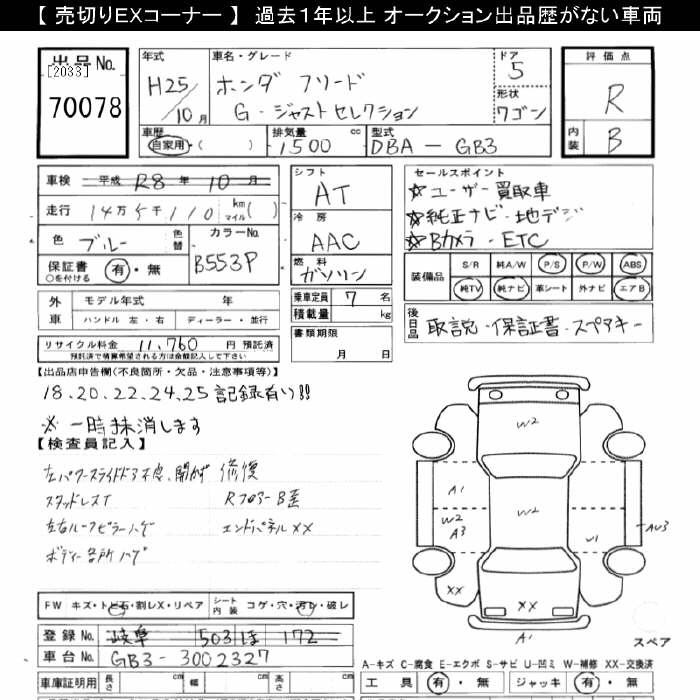 【 売切りEXコーナー 】 過去１年以上 オークション出品歴がない車両
出品No.
[2033]
70078
年式
H25/10月
車名・グレード
ホンダ フリード
G・ジャストセレクション
ドア
5
形状
ワゴン
評価点
R
内装
B
車歴
自家用・( )
排気量
1500 cc
型式
DBA - GB3
車検
平成 R8 年 10 月
走行
14万5千110 km マイル( )
色
ブルー
色替
カラーNo.
B553P
保証書
○を付ける
有・無
シフト
AT
冷房
AAC
燃料
ガソリン
乗車定員 7 名
積載量 kg
書類期限
月 日
セールスポイント
☆ユーザー買取車
☆純正ナビ・地デジ
☆Bカメラ・ETC
装備品
S/R 純A/W P/S P/W ABS
純TV 純ナビ 革シート 外ナビ エアB
後日品
取説・保証書・スペアキー
外車
モデル年式 年
ハンドル 左・右 ディーラー・並行
リサイクル料金 11,760 円 預託済
預託済で精算希望される方は金額記入して下さい
【出品店申告欄(不良箇所・欠品・注意事項等)】
18.20.22.24.25 記録有り!!
※一時抹消します
【検査員記入】
左パワースライドドア不良、開かず 修復
スタッドレスT RフロアーB歪
左右ルーフピラーハゲ エンドパネルXX
ボディー各所ハゲ
W2
A1
W2
A3
W2
W1
AU3
XX
XX
A1
スペア
FW キズ・トビ石・割レX・リペア シート内装 コゲ・穴・汚レ・破レ
登録No. 岐阜 503 ほ 172
車台No. GB3-3002327
車庫証明用 長さ cm 幅 cm 高さ cm
A-キズ C-腐食 E-エクボ S-サビ U-凹ミ W-補修 XX-交換済
工具 有・無 ジャッキ 有・無